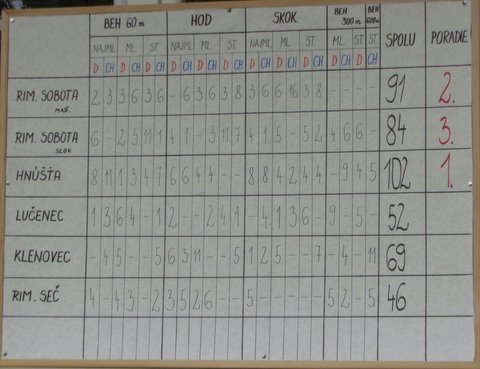 BEH 60 m HOD SKOK BEH 300 m BEH 600 m SPOLU PORADIE
NAJML. ML. ST. NAJML. ML. ST. NAJML. ML. ST. ML. ST. ST.
D CH D CH D CH D CH D CH D CH D CH D CH D CH D CH D CH
RIM. SOBOTA MAĎ. 2 3 3 6 3 6 - 6 3 6 3 8 3 6 6 16 3 8 91 2.
RIM. SOBOTA SLOV. 6 - 2 5 11 1 4 1 - 3 11 7 4 1 5 - 5 2 4 6 6 - 84 3.
HNÚŠŤA 8 11 1 3 4 7 6 6 4 4 - - 8 8 4 2 4 4 - 9 4 5 102 1.
LUČENEC 1 3 6 4 - 1 2 - - 2 4 1 - 4 1 3 6 - 9 - 5 - 52
KLENOVEC - 4 5 - - 5 6 3 11 - - 5 1 2 5 - - 7 - 4 - 11 69
RIM. SEČ 4 - 4 3 - 2 3 5 2 6 - - 5 - - - - - 5 2 - 5 46